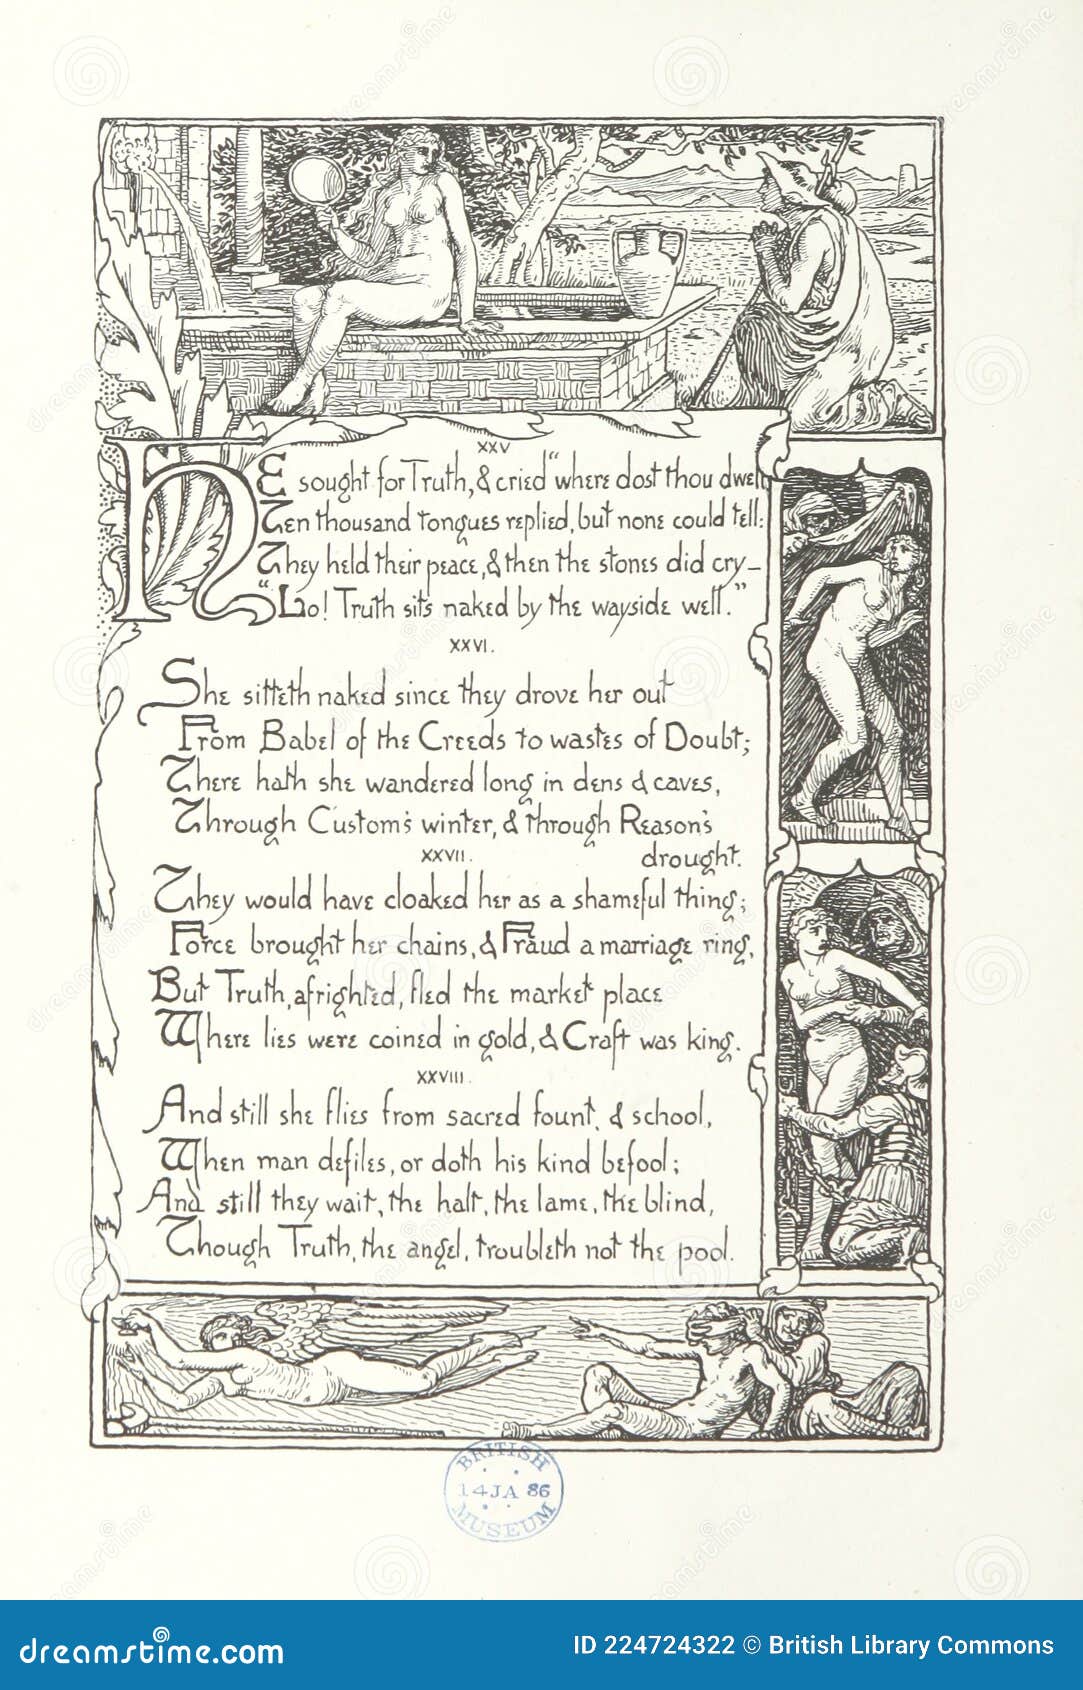 XXV
HE sought for Truth, & cried "where dost thou dwell
Ten thousand tongues replied, but none could tell:
They held their peace, & then the stones did cry—
"Lo! Truth sits naked by the wayside well."
XXVI.
She sitteth naked since they drove her out
From Babel of the Creeds to wastes of Doubt;
There hath she wandered long in dens & caves,
Through Custom's winter, & through Reason's
drought.
XXVII.
They would have cloaked her as a shameful thing;
Force brought her chains, & Fraud a marriage ring,
But Truth, afrighted, fled the market place
Where lies were coined in gold, & Craft was king.
XXVIII.
And still she flies from sacred fount, & school,
When man defiles, or doth his kind befool;
And still they wait, the halt, the lame, the blind,
Though Truth, the angel, troubleth not the pool.
BRITISH
14 JA 86
MUSEUM
dreamstime.com
ID 224724322 © British Library Commons